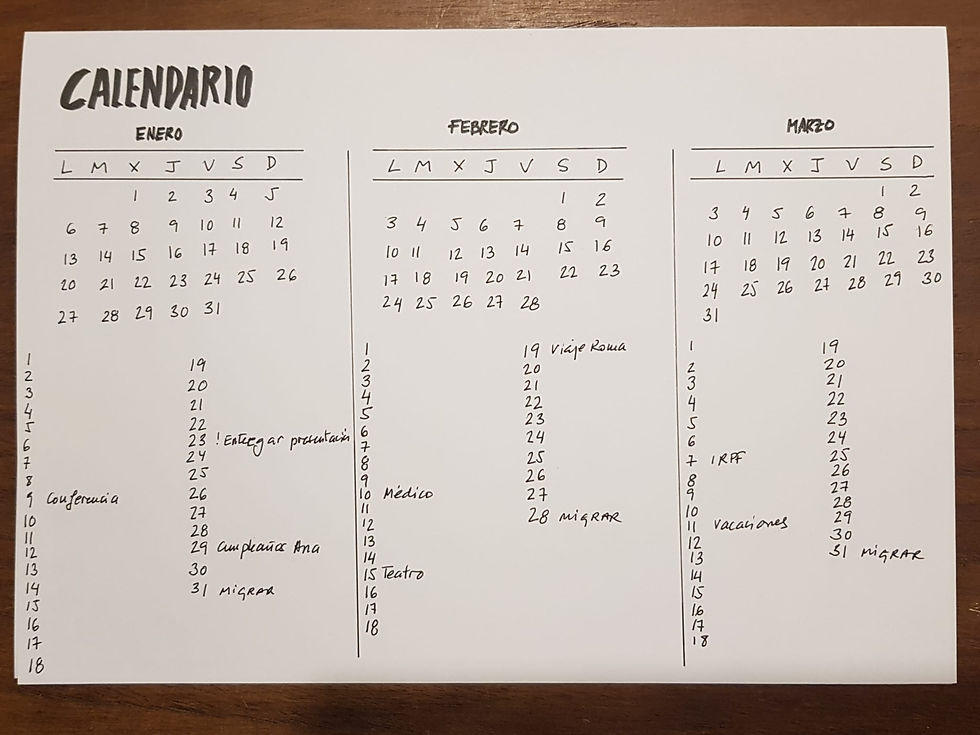 CALENDARIO
ENERO
L M X J V S D
1 2 3 4 5
6 7 8 9 10 11 12
13 14 15 16 17 18 19
20 21 22 23 24 25 26
27 28 29 30 31
1
2
3
4
5
6
7
8
9 Conferencia
10
11
12
13
14
15
16
17
18
19
20
21
22
23 ! Entregar presentación
24
25
26
27
28
29 Cumpleaños Ana
30
31 MIGRAR
FEBRERO
L M X J V S D
1 2
3 4 5 6 7 8 9
10 11 12 13 14 15 16
17 18 19 20 21 22 23
24 25 26 27 28
1
2
3
4
5
6
7
8
9
10 Médico
11
12
13
14
15 Teatro
16
17
18
19 Viaje Roma
20
21
22
23
24
25
26
27
28 MIGRAR
MARZO
L M X J V S D
1 2
3 4 5 6 7 8 9
10 11 12 13 14 15 16
17 18 19 20 21 22 23
24 25 26 27 28 29 30
31
1
2
3
4
5
6
7 IRPF
8
9
10
11 Vacaciones
12
13
14
15
16
17
18
19
20
21
22
23
24
25
26
27
28
29
30
31 MIGRAR